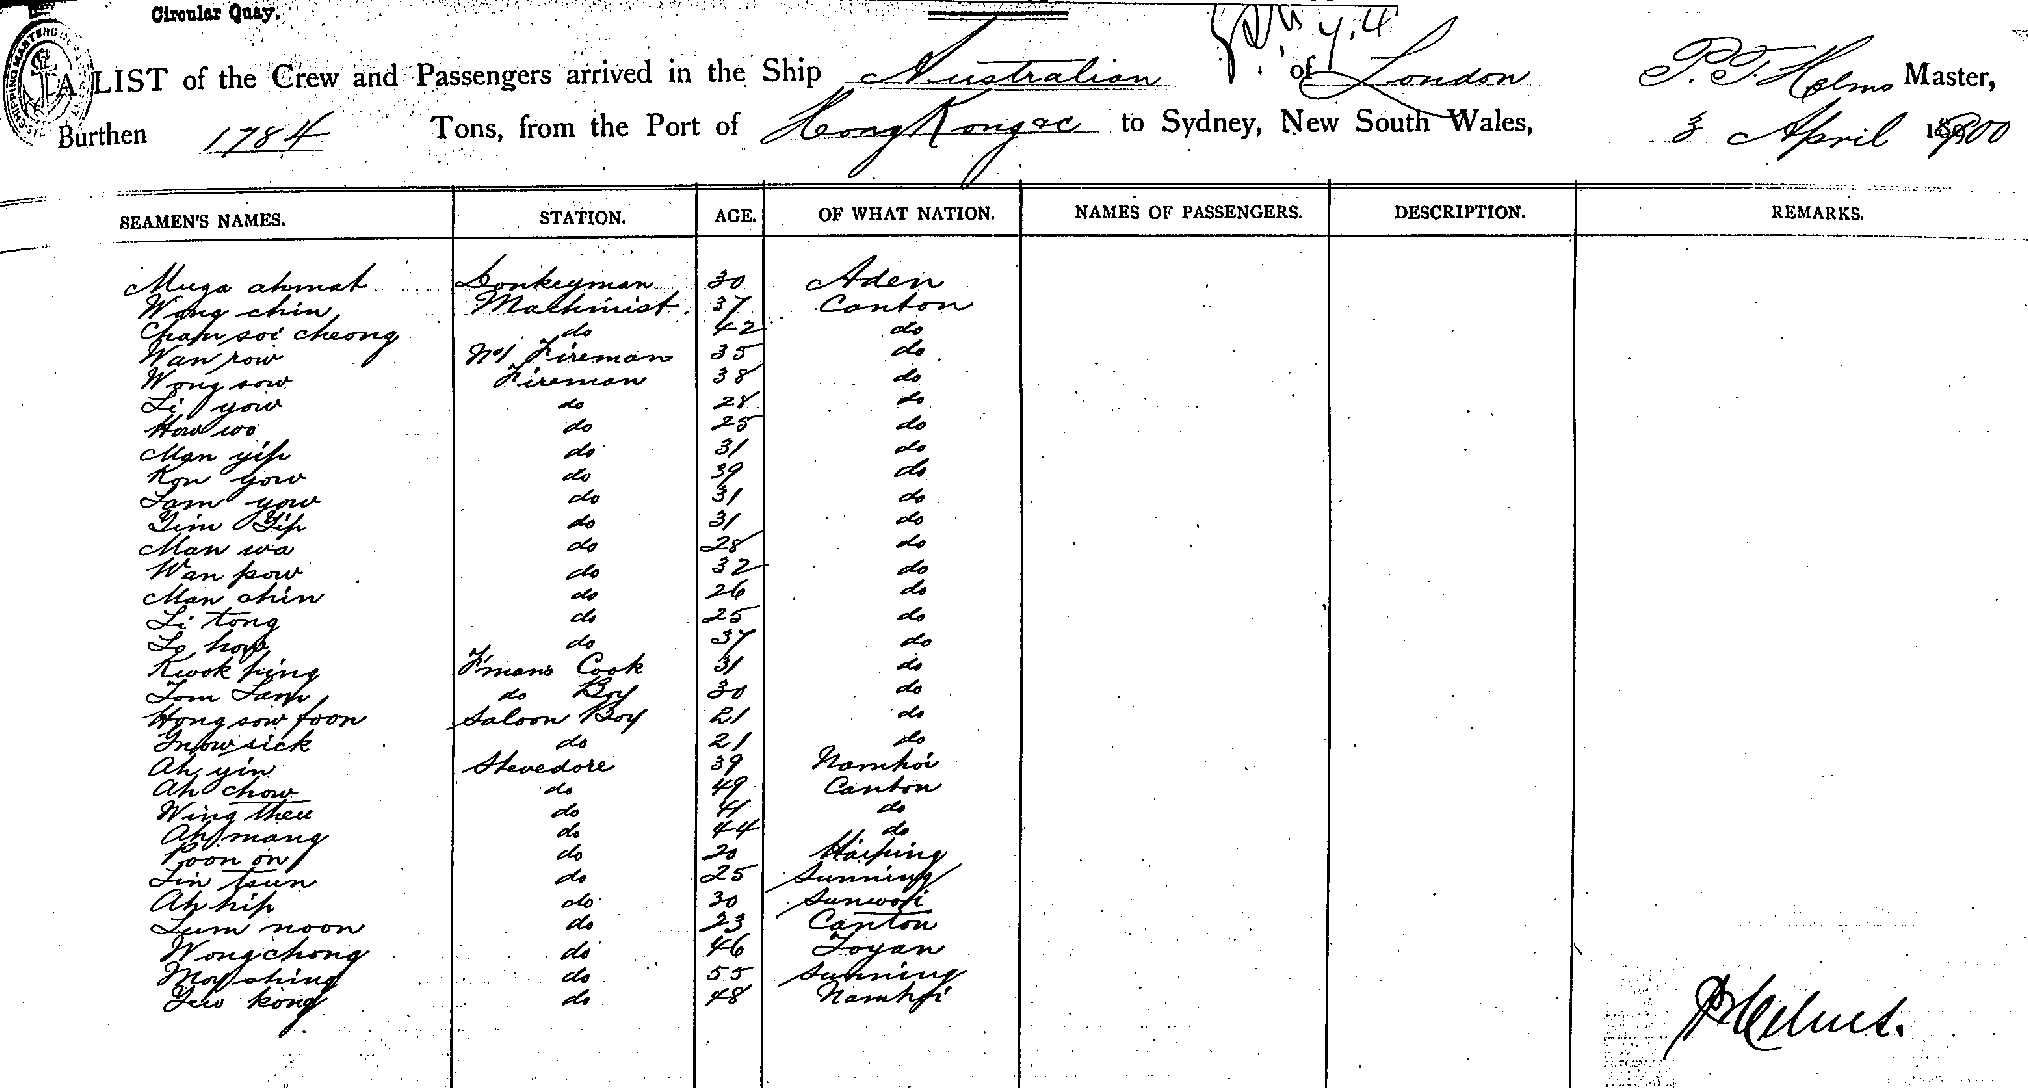 Circular Quay.
A LIST of the Crew and Passengers arrived in the Ship Australian of London P. T. Helms Master,
Burthen 1784 Tons, from the Port of Hong Kong &c to Sydney, New South Wales, 3 April 1900
SEAMEN'S NAMES. STATION. AGE. OF WHAT NATION. NAMES OF PASSENGERS. DESCRIPTION. REMARKS.
Muga ahmat Donkeyman 30 Aden
Wong chin Machinist 37 Canton
Cham soi cheong do 42 do
Wan row No1 Fireman 35 do
Wong sow Fireman 38 do
Li yow do 28 do
How wo do 25 do
Man yip do 31 do
Kon yow do 39 do
Lam yow do 31 do
Yim Yip do 31 do
Man wa do 28 do
Wan pow do 32 do
Man chin do 26 do
Li tong do 25 do
Lo hop do 37 do
Kwok hing F'mans Cook 31 do
Tom Lam do Boy 30 do
Hong sow foon Saloon Boy 21 do
sick do 21 do
Ah yin Stevedore 39 Namhoi
Ah chow do 49 Canton
Wing do 41 do
Ah mang do 44 do
Poon on do 20 Haiping
Lin do 25 Sunning
Ah hip do 30 Sunwoi
Lum noon do 23 Canton
Wong chong do 46 Toyan
ching do 55 Sunning
kong do 48 Namhoi
P. T. Helms.